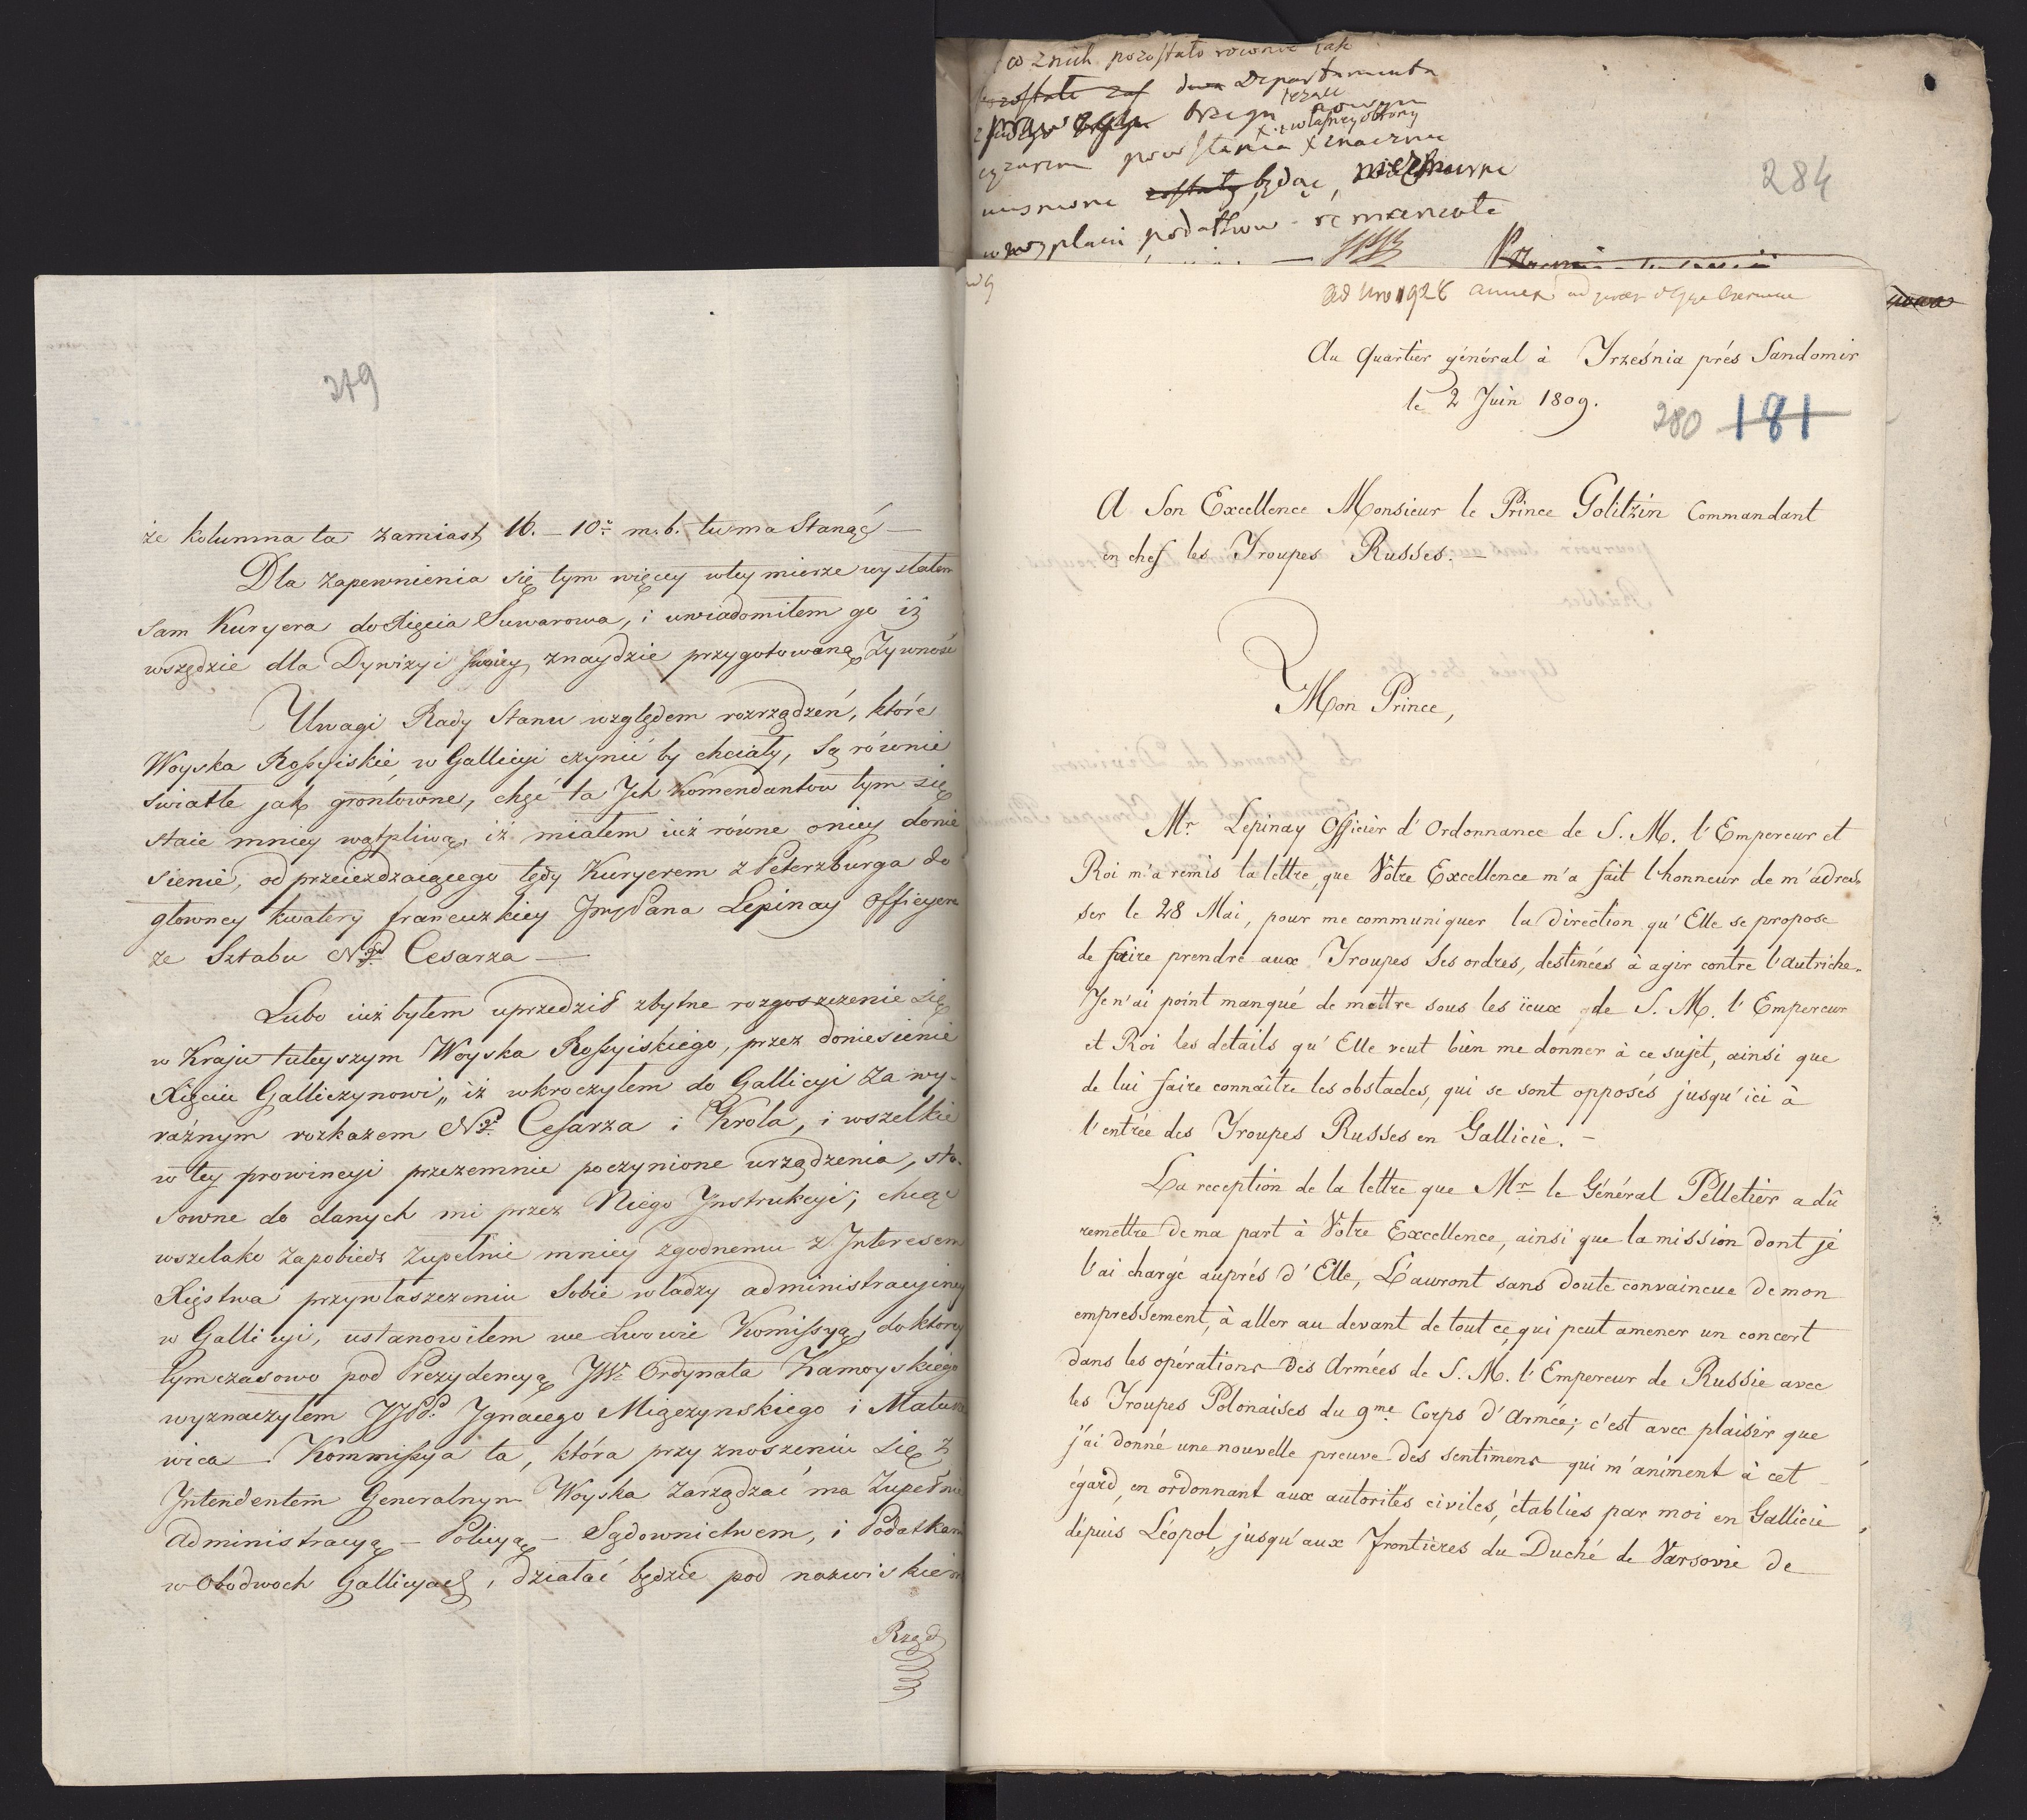 279
że kolumna ta zamiast 16. – 10º m. b. tu ma Stanąć —
Dla zapewnienia się tym więcey w tey mierze wysłałem
sam Kuryera do Xięcia Suwarowa, i uwiadomiłem go iż
wszędzie dla Dywizyi swoiey znaydzie przygotowaną Żywność
Uwagi Rady Stanu względem rozrządzeń, które
Woyska Rossyiskie w Gallicyi czynić by chciały, są równie
swiatłe jak grontowne, chęć ta Ich Komendantow tym się
staie mniey wątpliwą, iż miałem iuż równe oniey donie
sienie, od przeieżdzaiącego tędy Kuryerem z Peterzburga do
głowney kwatery francuzkiey Pana Lepinay Officyera
ze Sztabu Cesarza —
Lubo iuż byłem uprzedził zbytne rozgoszczenie się
w Kraju tuteyszym Woyska Rossyiskiego, przez doniesienie
Xięciu Galliczynowi, iż wkroczyłem do Gallicyi za wy-
raźnym rozkazem Cesarza i Krola, i wszelkie
w tey prowincyi przezemnie poczynione urządzenia, sto-
sowne do danych mi przez Niego Instrukcyi; chcąc
wszelako zapobiedz zupełnie mniey zgodnemu z Interesem
Xięstwa przywłaszczeniu Sobie władzy administracyiney
w Gallicyi, ustanowiłem we Lwowie Komissyą, do ktorey
tymczasowo pod Prezydencyą JW. Ordynata Zamoyskiego
wyznaczyłem Ignacego Miączynskiego i Matusze
wica — Kommissya ta, która przy znoszeniu się z
Intendentem Generalnym Woyska Zarządzać ma Zupełnie
Administracyą – Policyą – Sądownictwem, i Podatkami
w Obodwoch Gallicyach, działać będzie pod nazwiskiem
Rząd
co z nich pozostało rownie jak
pozostałe zaś dwa Departamenta
brzegu
powstania znacznie
zostały będąc,
podatkow
284
Ad Nro 1928 annex
Au Quartier général à Trześnia prés Sandomir
le 2 Juin 1809.
280 181
A Son Excellence Monsieur le Prince Golitzin Commandant
en chef les Troupes Russes. —
Mon Prince,
Mr Lepinay Officier d'Ordonnance de S. M. l'Empereur et
Roi m'a remis la lettre, que Vôtre Excellence m'a fait l'honneur de m'adres-
ser le 28 Mai, pour me communiquer la direction qu'Elle se propose
de faire prendre aux Troupes Ses ordres, destinées à agir contre l'autriche.
Je n'ai point manqué de mettre sous les ïeux de S. M. l'Empereur
et Roi les details qu'Elle veut bien me donner à ce sujet, ainsi que
de lui faire connaître les obstacles, qui se sont opposés jusqu'ici à
l'entrée des Troupes Russes en Gallicie. –
La reception de la lettre que Mr le Général Pelletier a dû
remettre de ma part à Votre Excellence, ainsi que la mission dont je
l'ai chargé auprés d'Elle, L'auront sans doute convaincue de mon
empressement, à aller au devant de tout ce, qui peut amener un concert
dans les opérations des Armées de S. M. l'Empereur de Russie avec
les Troupes Polonaises du 9me Corps d'Armée; c'est avec plaisir que
j'ai donné une nouvelle preuve des sentimens qui m'animent à cet
égard, en ordonnant aux autorités civiles, établies par moi en Gallicie
depuis Léopol, jusqu'aux frontieres du Duché de Varsovie de